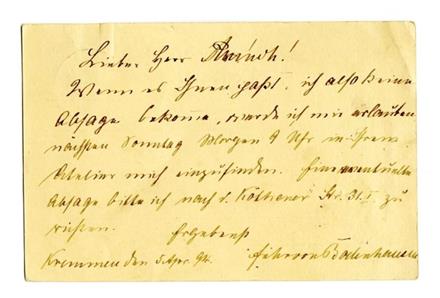 Lieber Herr
Wenn es Ihnen paßt, ich also keine
Absage bekome, werde ich mir erlauben
nächsten Sonntag Morgen 9 Uhr in Ihrem
Atelier mich einzufinden. Eine eventuelle
Absage bitte ich nach d. Köthener Str. 31.I. zu
richten. Ergebenst
Kremmen den 5 Apr. 94.